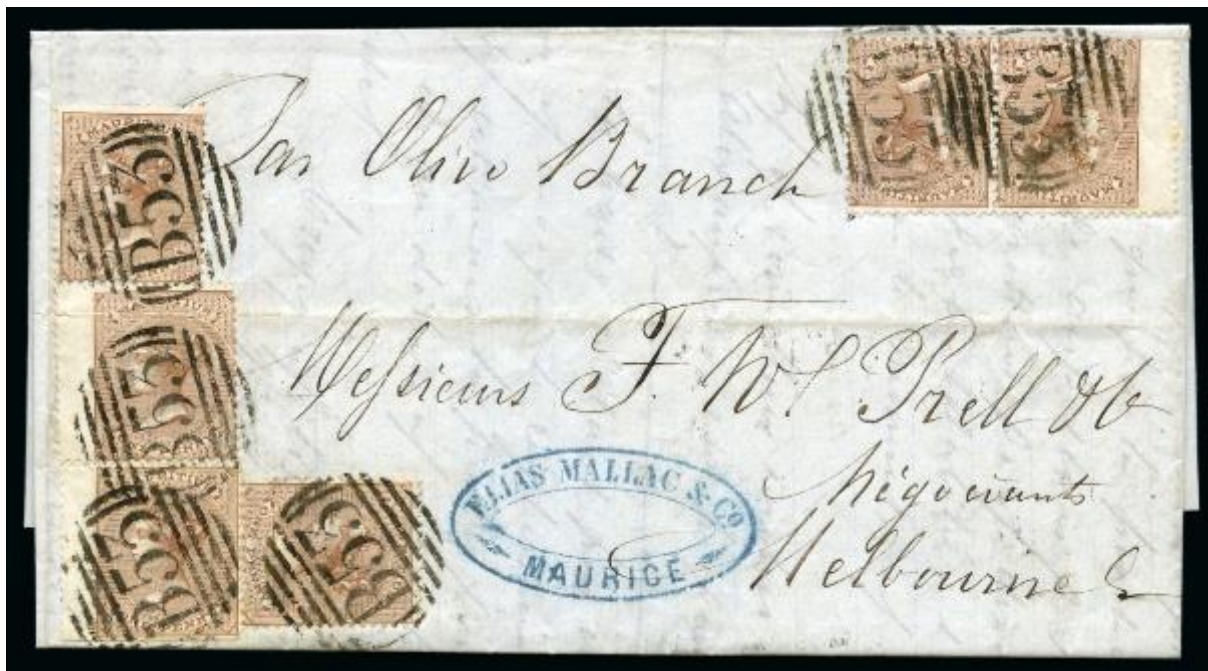 Par Olive Branch
B53
B53
B53
B53
B53
B53
Messieurs F. W. Prell & Co
Négociants
Melbourne
ELIAS MALLAC & Co
MAURICE